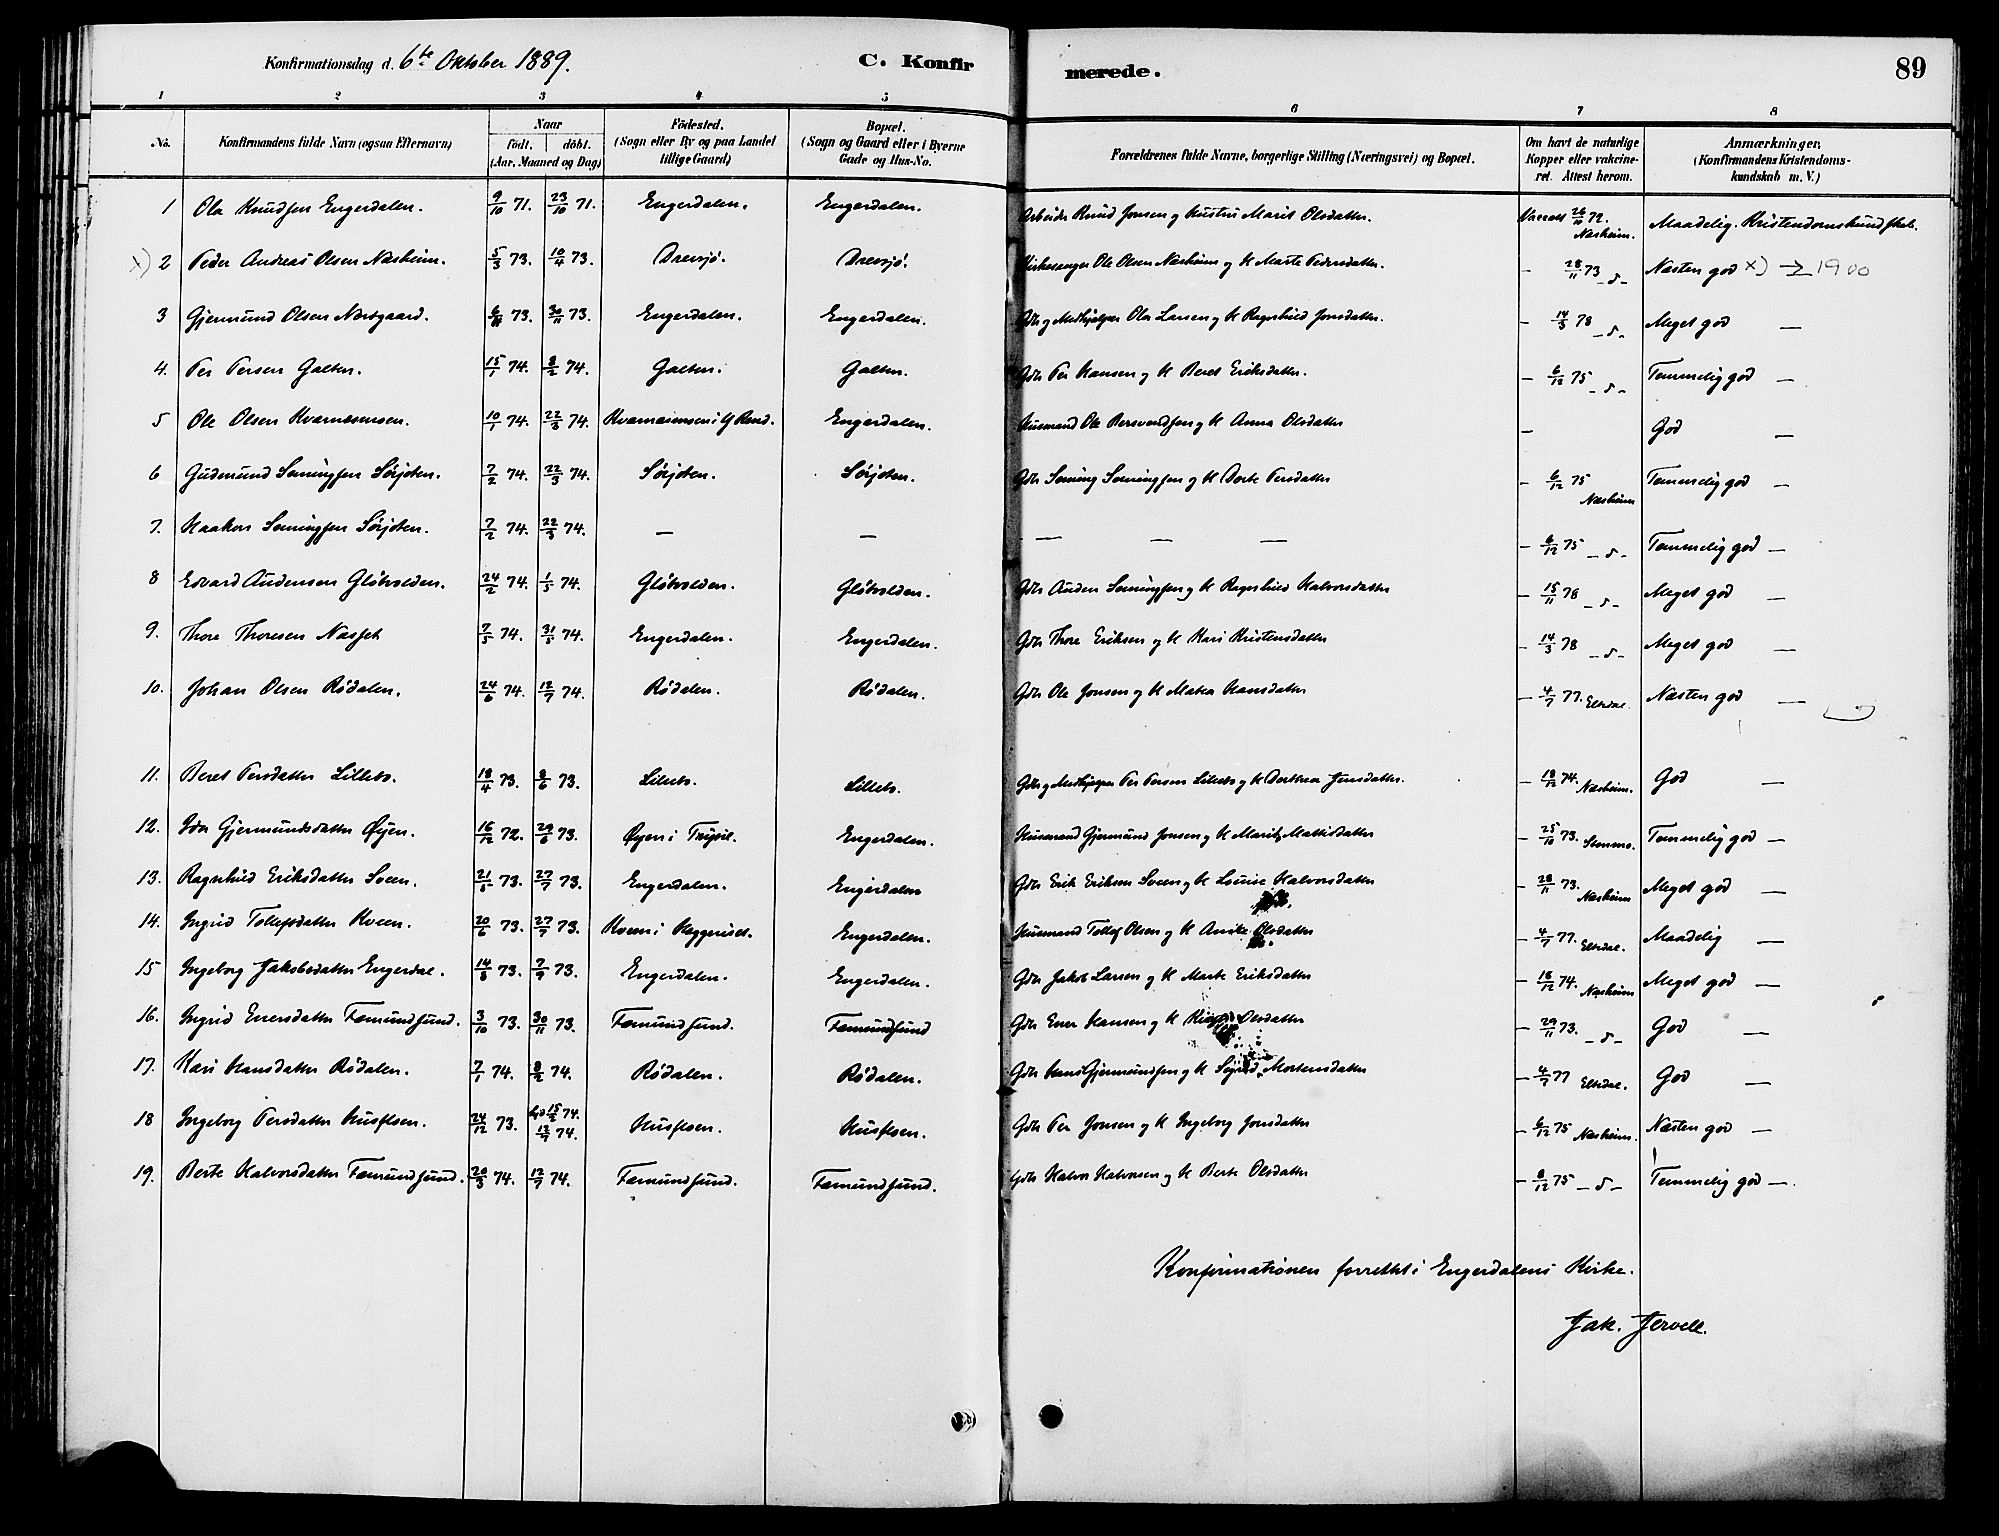 Konfirmationsdag d. 6te Oktober 1889.
C. Konfirmerede.
89
1 2 3 4 5 6 7 8
No.
Konfirmandens fulde Navn (ogsaa Efternavn)
Naar
födt. döbt.
(Aar, Maaned og Dag)
Födested.
(Sogn eller By og paa Landet tillige Gaard)
Bopæl.
(Sogn og Gaard eller i Byerne Gade og Hus-No.
Forældrenes fulde Navne, borgerlige Stilling (Næringsvei) og Bopæl.
Om havt de naturlige Kopper eller vakcineret. Attest herom.
Anmærkninger.
(Konfirmandens Kristendomskundskab m. V.)
1 Ola Knudsen Engerdalen. 9/10 71. 23/10 71. Engerdalen. Engerdalen. Arbeider Knud Jonsen og Hustru Marit Olsdatter. Vaccat 26/10 72. Næsheim. Maadelig. Kristendomskundskab.
x) 2 Peder Andreas Olsen Næsheim. 5/3 73. 10/4 73. Drevsjø. Drevsjø. Kirkesanger Ole Olsen Næsheim og H Marte Pedersdatter. - 28/11 73 -"- Næsten god x) → 1900
3 Gjermund Olsen Nordgaard. 6/11 73. 30/11 73. Engerdalen. Engerdalen. Gdr og Medhjelper Ola Larsen og H Ragnhild Jonsdatter. - 14/3 78 -"- Meget god —
4. Per Persen Galten. 15/1 74. 8/2 74. Galten. Galten. Gdr Per Hansen og H Beret Eriksdatter. - 6/12 75 -"- Temmelig god —
5 Ole Olsen Kvernesmoen. 10/1 74. 22/3 74. Engerdalen. Husmand Ole Bersvendsen og H Anna Olsdatter - God —
6 Gudmund Semingsen Sörjoten. 7/2 74. 22/3 74. Sörjoten. Sörjoten. Gdr Seming Semingsen og H Dorte Persdatter - 6/12 75 Næsheim Temmelig god —
7. Haakon Semingsen Sörjoten. 7/2 74. 22/3 74. — — — — — - 6/12 75 -"- Temmelig god —
8 Edvard Audensen Glötvolden. 24/2 74. 1/5 74. Glötvolden. Glötvolden. Gdr Auden Semingsen og H Ragnhild Halvorsdatter - 15/11 78 -"- Meget god —
9. Thore Thoresen Næsset 7/5 74. 31/5 74. Engerdalen. Engerdalen. Gdr Thore Eriksen og H Kari Kristensdatter - 14/3 78 -"- Meget god —
10. Johan Olsen Rödalen. 24/6 74. 12/7 74. Rödalen. Rödalen. Gdr Ole Jonsen og H Matea Hansdatter - 4/7 77. Eltdal. Næsten god —
11. Beret Persdatter Lillebo. 18/4 73. 8/6 73. Lillebo. Lillebo. Gdr og Medhjelper Per Persen Lillebo og H Dorthea Jonsdatter. - 18/12 74. Næsheim. God —
12. Ida Gjermundsdatter Øyen. 16/12 72. 29/6 73. Øyen i Trysil. Engerdalen. Husmand Gjermund Jonsen og H Marit Mattisdatter - 25/10 73. Temmelig god —
13. Ragnhild Eriksdatter Sveen. 21/5 73. 27/7 73. Engerdalen. Engerdalen Gdr Erik Eriksen Sveen og H Louise Halvorsdatter - 28/11 73. Næsheim Meget god —
14. Ingrid Tollefsdatter Kveen. 20/6 73. 27/7 73. Kveen i Heggeriset. Engerdalen. Husmand Tollef Olsen og H Anike Olsdatter - 4/7 77. Eltdal. Maadelig —
15 Ingeborg Jakobsdatter Engerdal. 14/8 73. 7/9 73. Engerdalen. Engerdalen. Gdr Jakob Larsen og H Marte Eriksdatter - 18/12 74. Næsheim Meget god —
16. Ingrid Enersdatter Fæmundsund. 3/10 73. 30/11 73. Fæmundsund. Fæmundsund Gdr Ener Hansen og H Olsdatter - 29/11 73. -"- God —
17. Kari Hansdatter Rödalen. 7/1 74. 8/2 74. Rödalen. Rödalen. Gdr Hans Gjermundsen og H Sigrid Mortensdatter - 4/7 77 Eltdal. God —
18 Ingeborg Persdatter Husfloen. 24/12 73. hjd 15/2 74. 12/7 74. Husfloen. Husfloen. Gdr Per Jonsen og H Ingeborg Jonsdatter - 6/12 75 Næsheim. Næsten god —
19. Berte Halvorsdatter Fæmundsund. 20/3 74. 12/7 74. Fæmundsund. Fæmundsund. Gdr Halvor Halvorsen og H Berte Olsdatter - 8/12 75 -"- Temmelig god —.
Konfirmationen forrettet i Engerdalens Kirke.
Jak. Jervell.